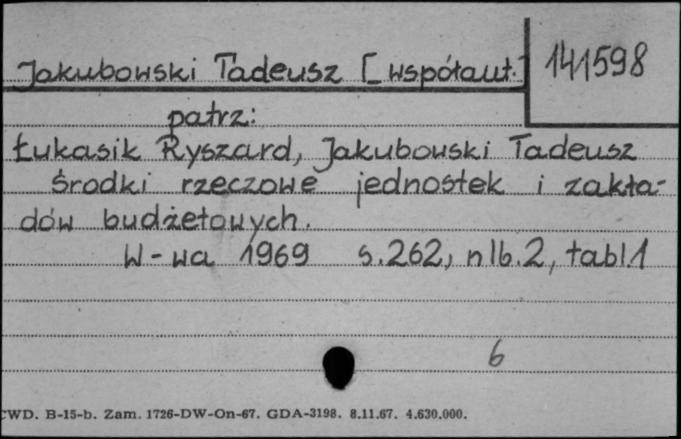 Jakubowski Tadeusz [współaut.]
141598
patrz:
Łukasik Ryszard, Jakubowski Tadeusz
Środki rzeczowe jednostek i zakła-
dów budżetowych.
W-wa 1969 s.262, nlb.2, tabl.1
6
CWD. B-15-b. Zam. 1726-DW-On-67. GDA-3198. 8.11.67. 4.630.000.